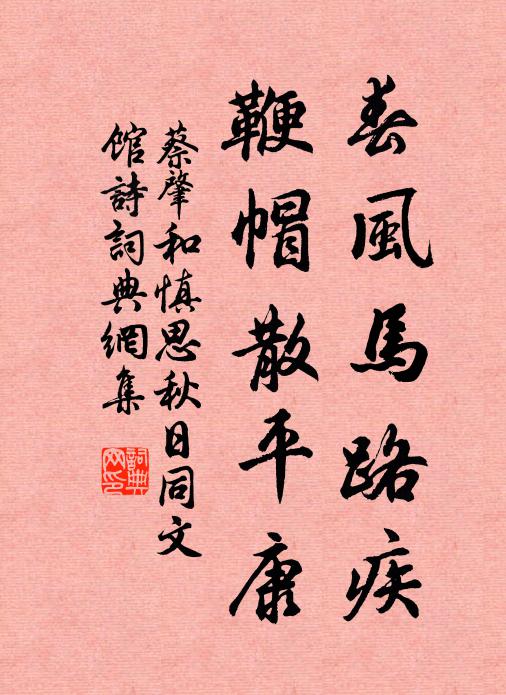 春風馬路疾
鞭帽散平康
蔡肇和慎思秋日同文
館詩詞典網集
詞典
网印